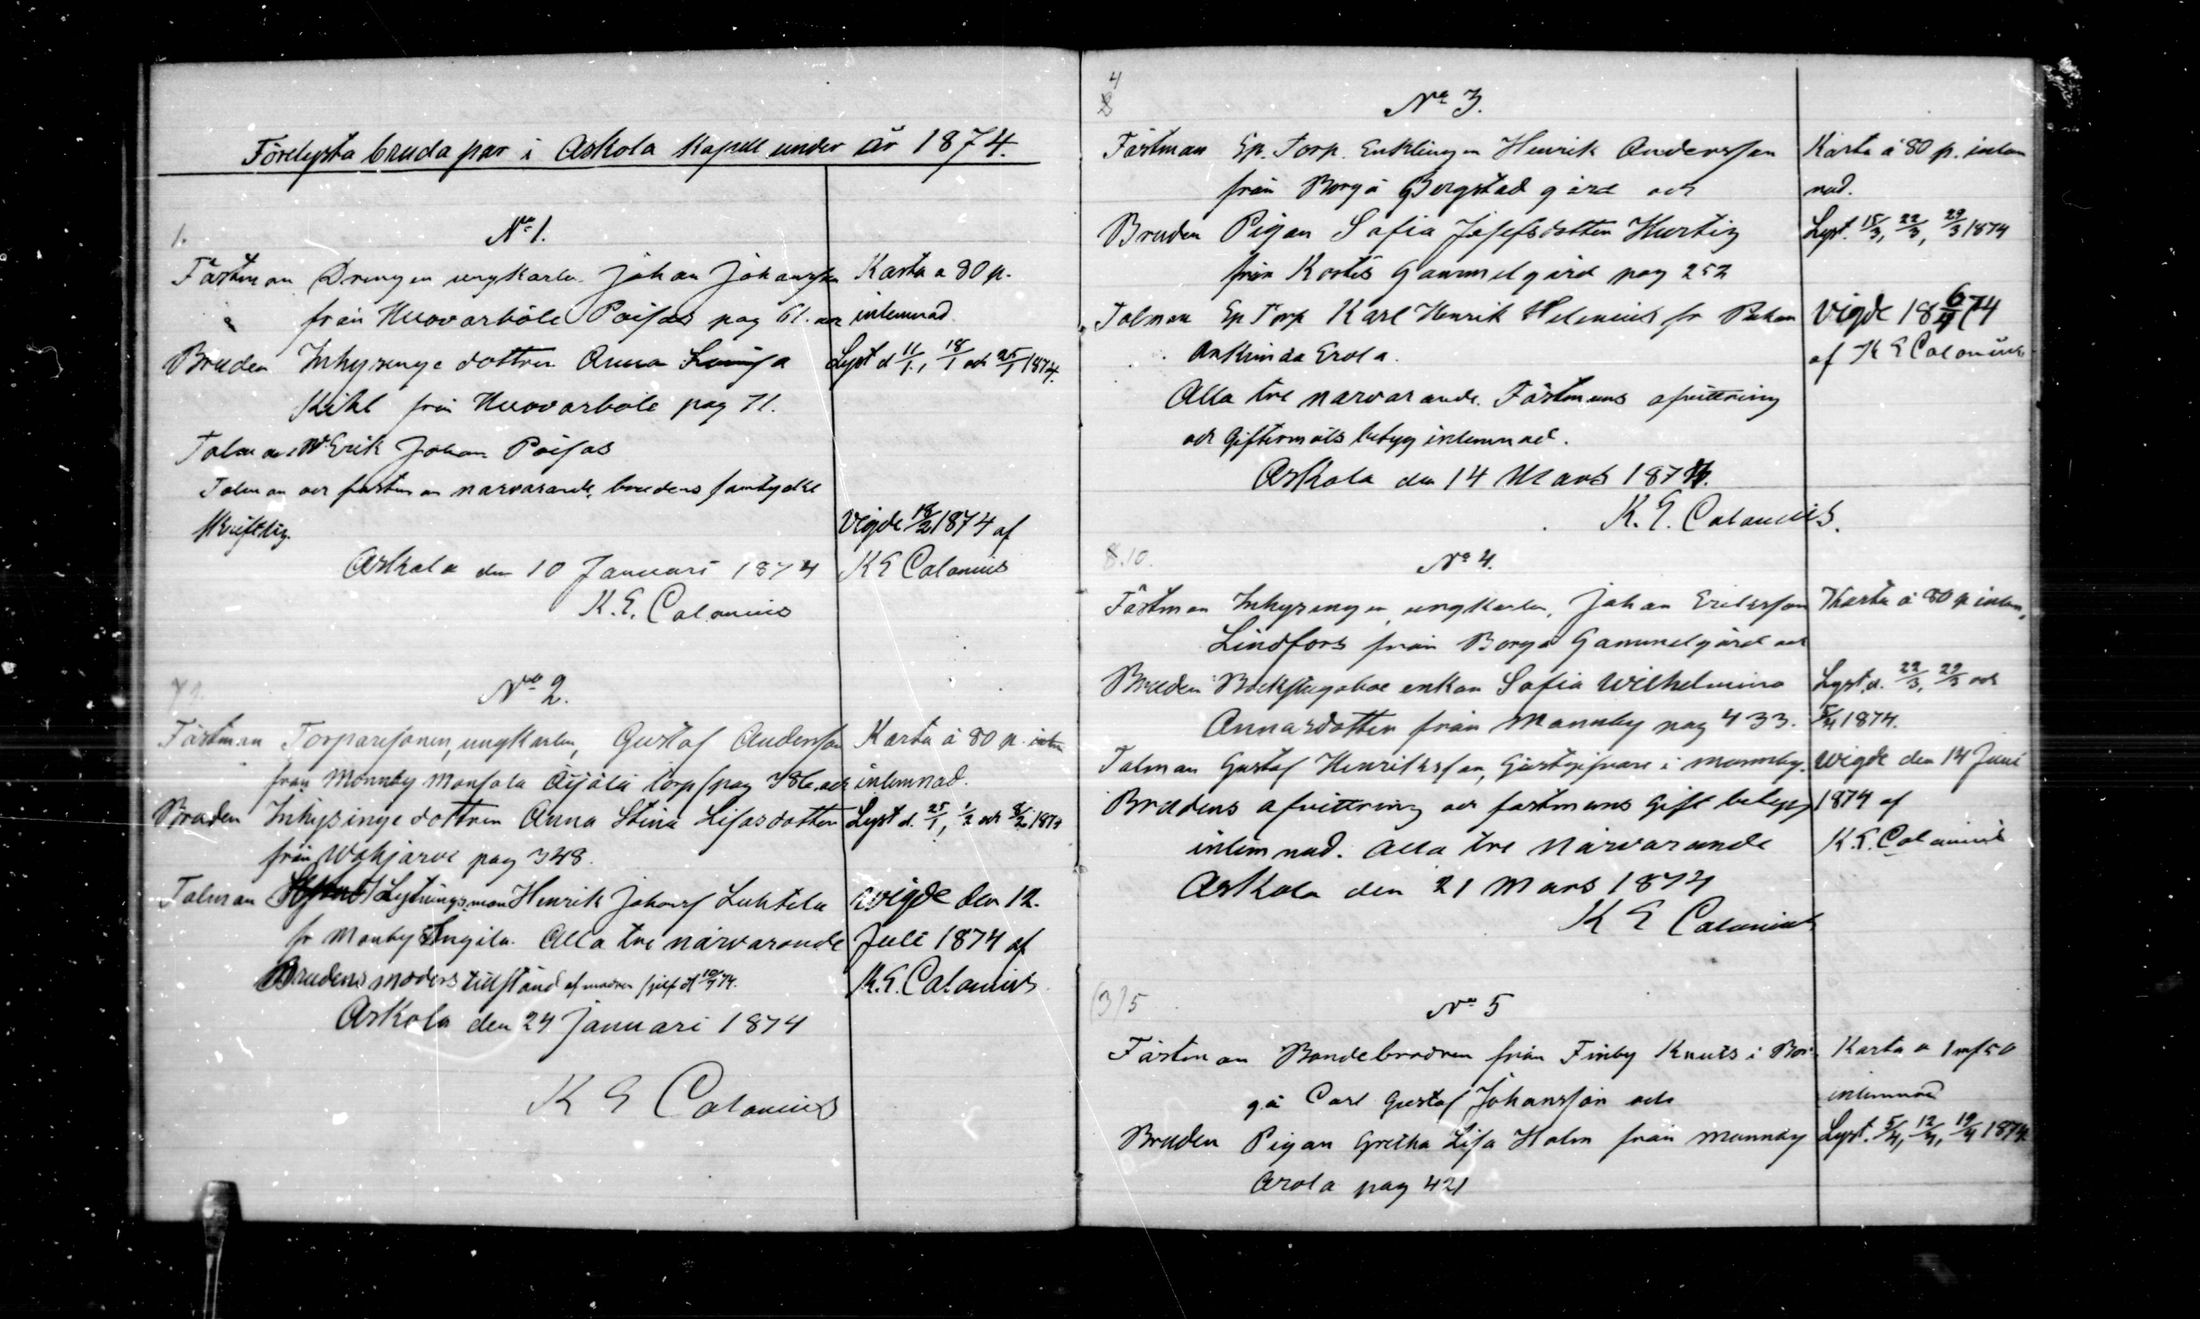 Förelysta bruda par i Askola Kapell under år 1874.
1.
No 1.
Fästman Drengen ungkarlen Johan Johansson
från Huovarböle Paijas pag 61. och
Bruden Inhysinge dottren Anna Lovisa
Kihl från Huovarböle pag 71.
Talman Erik Johan Paijas
Talman och fästman närvarande, brudens samtycke
skriftlig.
Askola den 10 Januari 1874
K. E. Calonius
Karta a 80 p.
inlemnad
Lyst d 11/1, 18/1 och 25/1 1874.
Vigde 18/2 1874 af
K E Calonius
No 2.
Fästman Torparesonen, ungkarlen, Gustaf Andersson
från Monnby Monsala Äijälä torp pag 386, och
Bruden Inhysinge dottren Anna Stina Lisasdotter
från Wahijärvi pag 348.
Talman Lysningsman Henrik Johansf Luhtela
fr Monby Angila. Alla tre närvarande
Brudens moders tillstånd af modren sjelf
Askola den 24 Januari 1874
K E Calonius
Karta á 80 p.
inlemnad.
Lyst d. 25/1, 1/2 och 8/2 1874
Wigde den 12.
Juli 1874 af
K. E. Calonius
4
No 3.
Fästman Ep. Torp. Enklingen Henrik Andersson
från Borgå Borgstad gård och
Bruden Pigan Sofia Josefsdotter Hurtig
från Kortis Gammelgård pag 252
Talman Ep Torp Karl Henrik Helenius fr
Erola.
Alla tre närvarande. Fästmans afvittring
och Giftermåls betyg inlemnad.
Askola den 14 Mars 1874.
K. E. Calonius.
Karta á 80 p. inlem
nad.
Lyst. 15/3, 22/3, 29/3 1874
Vigde 18 6/4 74
af K E Calonius
8.10.
No 4.
Fästman Inhysingen, ungkarlen, Johan Eriksson
Lindfors från Borgå Gammelgård och
Bruden Backstugoboe enkan Sofia Wilhelmina
Annasdotter från Monnby pag 433.
Talman Gustaf Henriksson, Gästgifvare i monnby.
Brudens afvittring och fästmans Gift betyg
inlemnad. Alla tre Närvarande
Askola den 21 Mars 1874
K E Calonius
Karta á 80 p inlem,
Lyst, d. 22/3, 29/3 och
5/4 1874.
Wigde den 14 Juni
1874 af
K. E. Calonius
(3) 5
No 5
Fästman Bondebrodren från Finby Knuts i Bor-
gå Carl Gustaf Johansson och
Bruden Pigan Gretha Lisa Holm från Monnby
Arola pag 421
Karta a 1 mf 50
inlemnad
Lyst. 5/4, 12/4, 19/4 1874